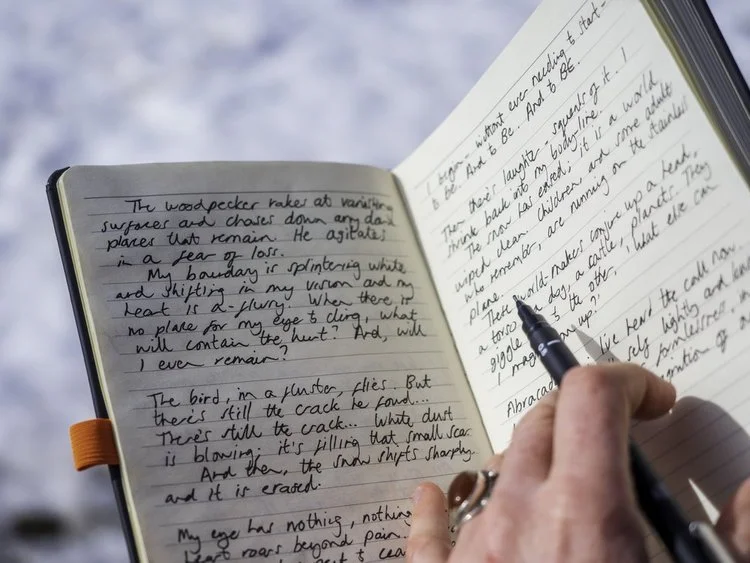 The woodpecker rakes at
surfaces and chases down any dark
places that remain. He agitates
in a fear of loss.
My boundary is splintering white
and shifting in my vision and my
heart is a-flurry. When there is
no place for my eye to cling, what
will contain the hurt? And, will
I even remain?
The bird, in a fluster, flies. But
there's still the crack he found...
There's still the crack... White dust
is blowing, it's filling that small scar.
And then, the snow shifts sharply
and it is erased.
My eye has nothing, nothing
heart roars beyond pain.
I begin - without ever needing to start -
to Be. And to Be. And to BE.
Then there's laughter - squeals of it. I
shrink back into my body-line.
The snow has ended; it is a world
wiped clean. Children and some adults
who remember, are running on the stainless
plane.
These world-makers conjure up a head,
a torso, a day, a castle, planets. They
giggle to the other, 'What else can
I up?'
Abracad
I've heard the call now.
self lightly and
formlessness,
of